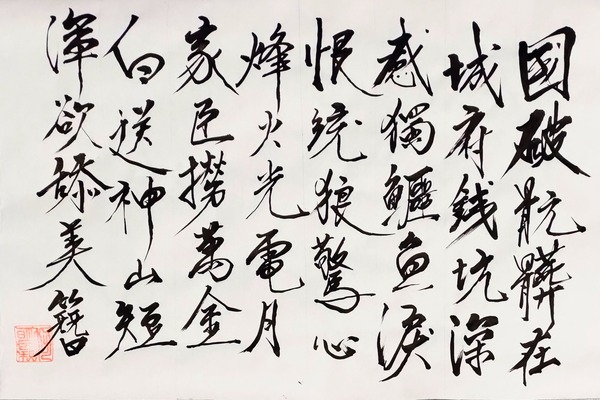 國破骯髒在
城府錢坑深
感獨鱷魚淚
恨統狼驚心
烽火光電月
家臣撈萬金
白送神山短
渾欲舔美簪